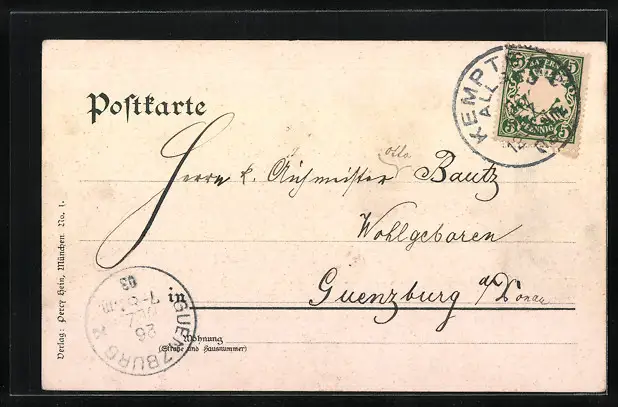 Postkarte
KEMPT
ALL
BAYERN
5 5
5 PFENNIG 5
Otto
Herrn k. Aichmeister Bautz
Wohlgeboren
in Guenzburg a/Donau
Wohnung
(Straße und Hausnummer)
GUENZBURG
26
DEZ
03
Verlag: Percy Hein, München. No. 1.